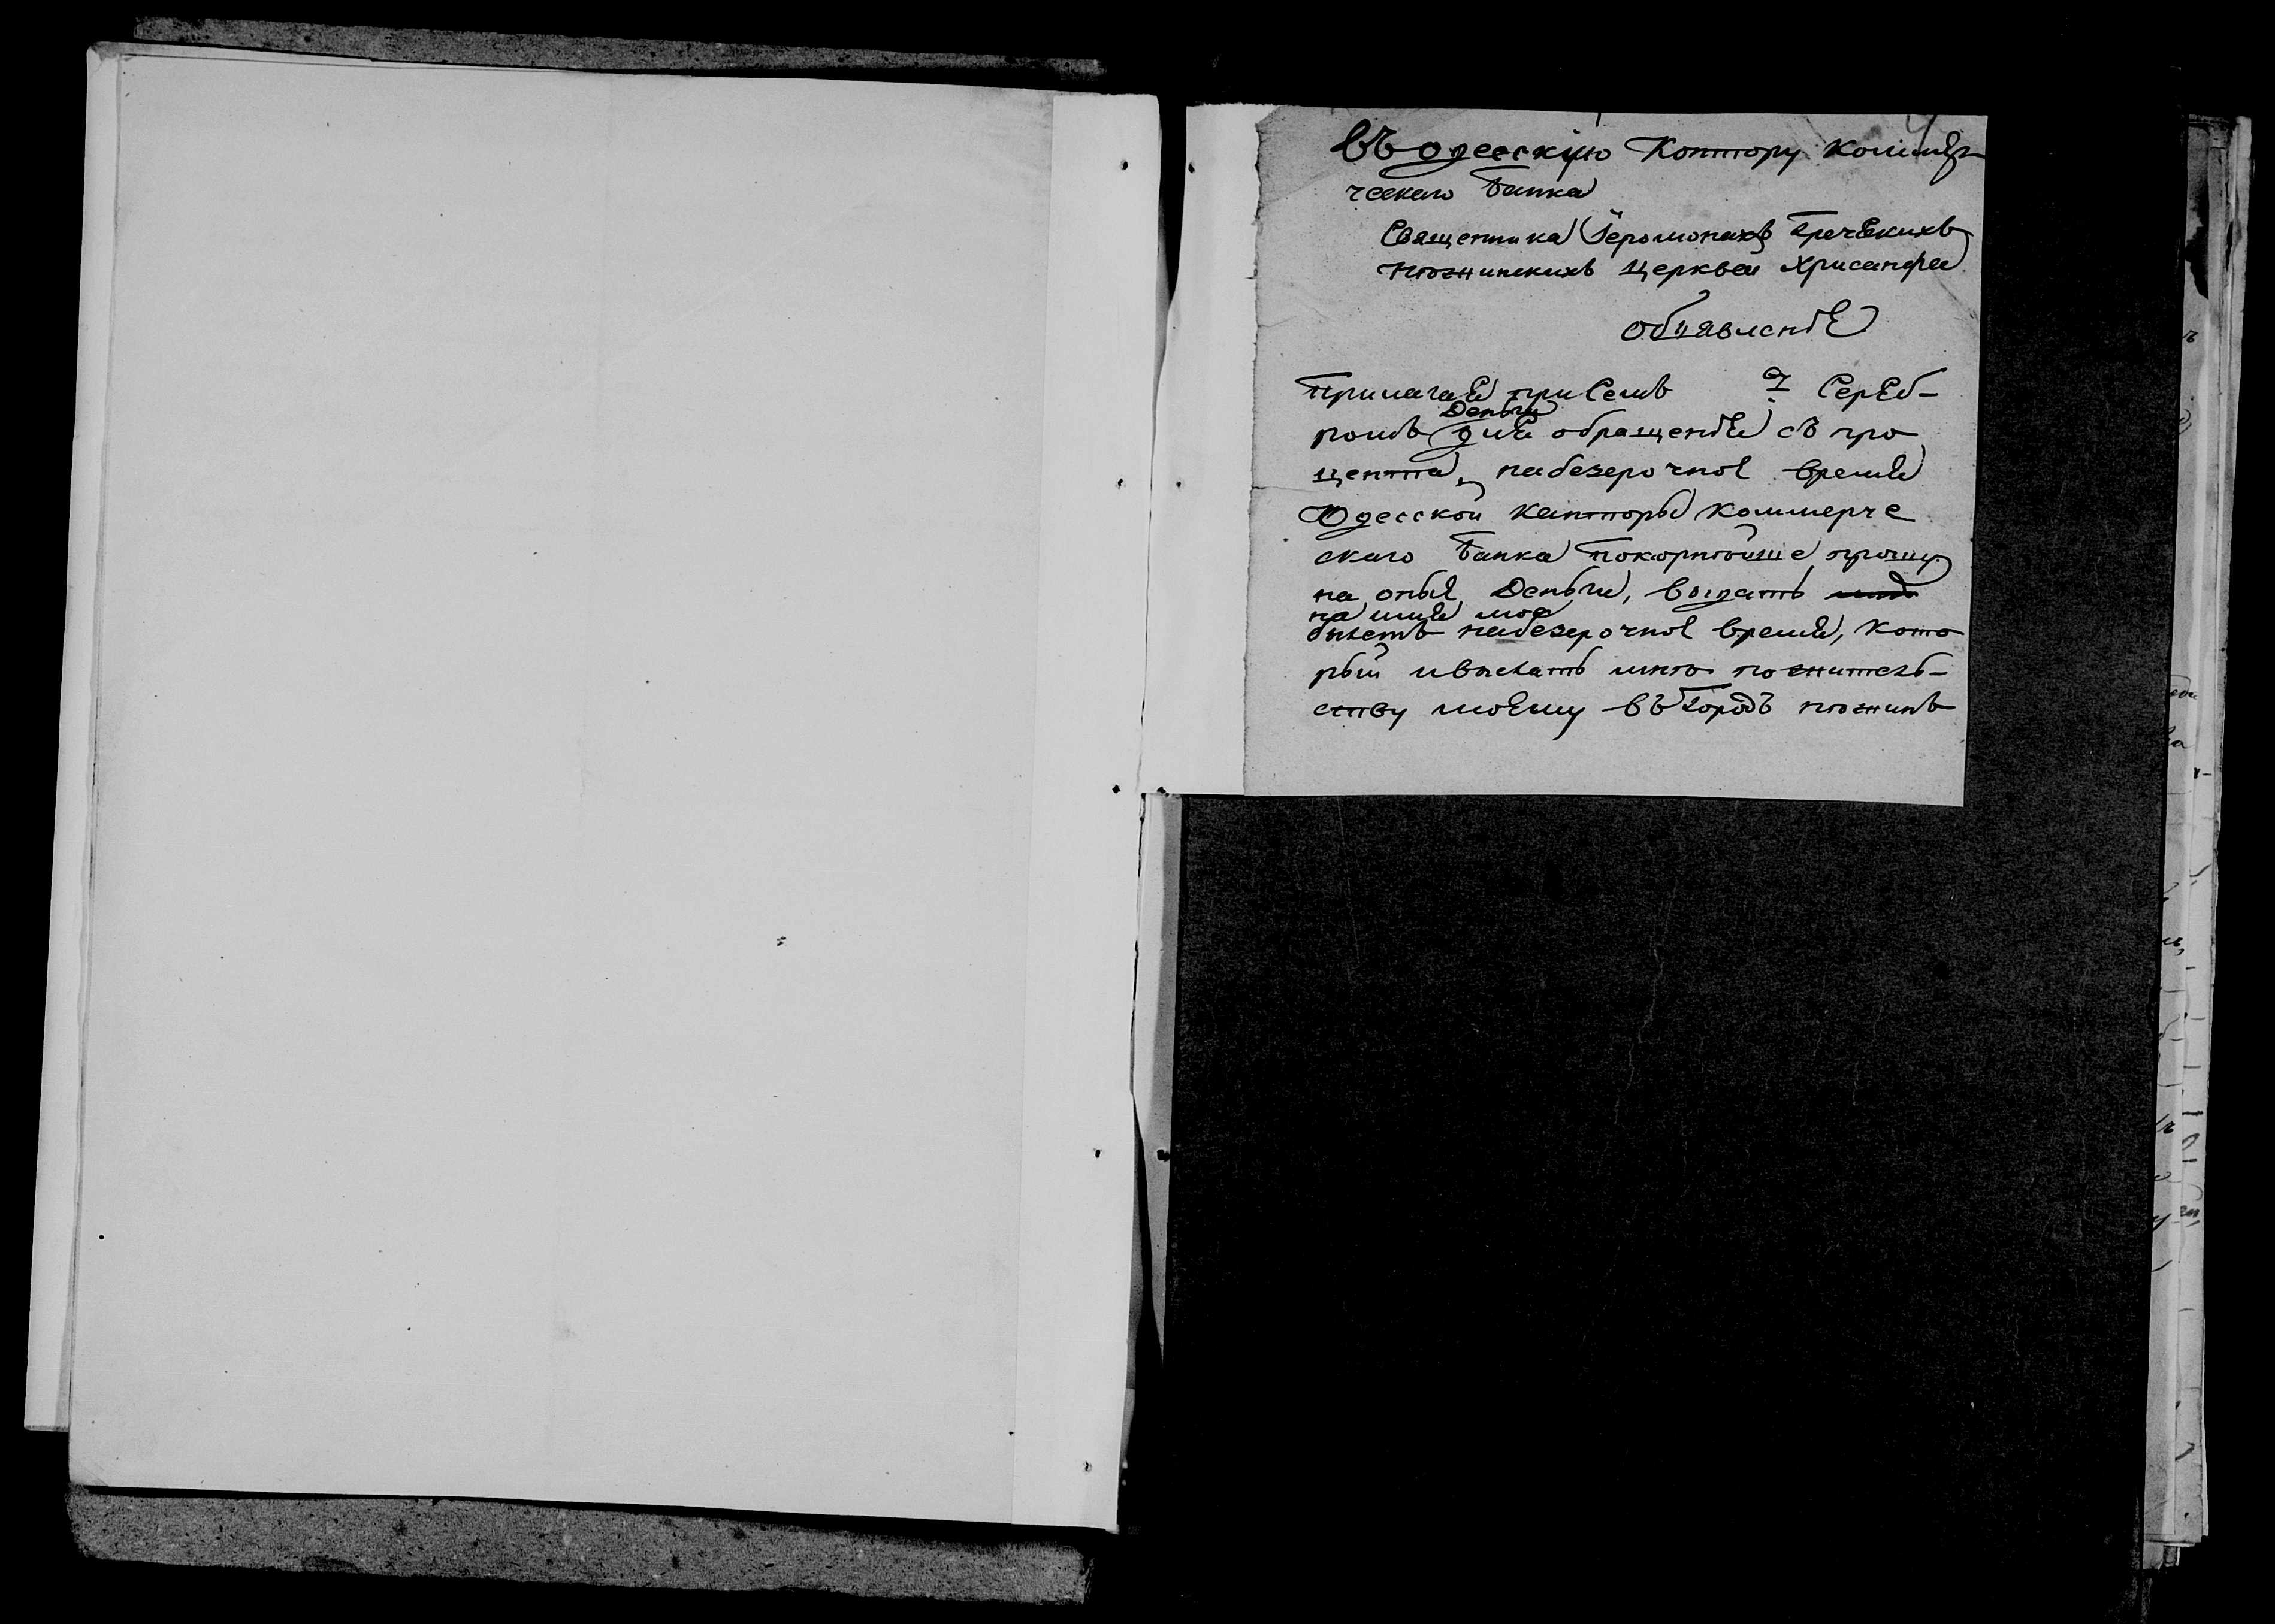 Въ одесскую Контору Коммер
ческаго Банка
Священника Іеромонаха Греческихъ
Нѣжинскихъ Церквей Хрисанфа
Объявленіе
Прилагая при семъ Сереб-
Деньги
ромъ для обращенія съ про
цента, набезсрочное время
Одесской канторы Коммерче
скаго Банка покорнѣйше прошу
на оныя Деньги, выдать
на имя мое
билетъ набезсрочное время, кото
рый и выслать мнѣ по жительь-
ству моему въ Городъ Нѣжинъ